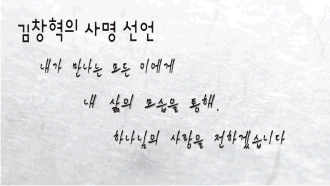 김창혁의 사명 선언
내가 만나는 모든 이에게
내 삶의 모습을 통해,
하나님의 사랑을 전하겠습니다